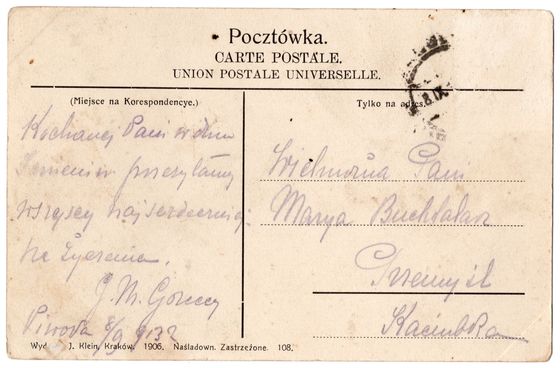 Pocztówka.
CARTE POSTALE.
UNION POSTALE UNIVERSELLE.
(Miejsce na Korespondencye.)
Kochanej Pani w dniu
Imienin przesyłamy
wszyscy najserdeczniej
sze życzenia.
Tylko na adres.
8 IX
Wielmożna Pani
Marya
Przemyśl
Wyd J. Klein, Kraków. 1906. Naśladown. Zastrzeżone. 108.